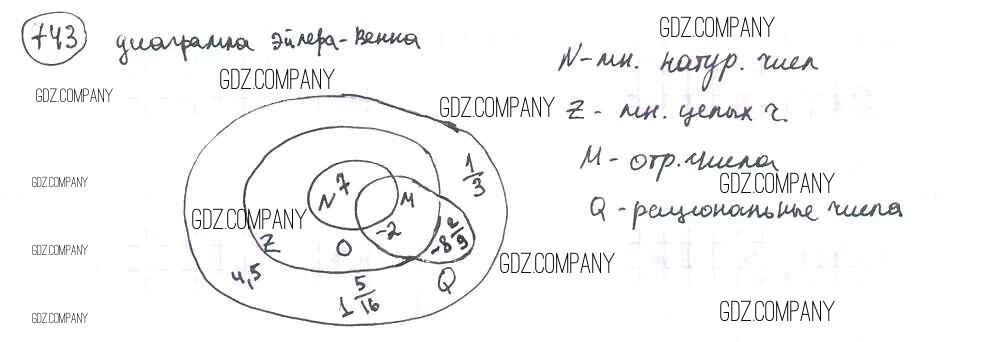 743 диаграмма Эйлера-Венна
GDZ.COMPANY
N-мн. натур. чисел
GDZ.COMPANY
GDZ.COMPANY
GDZ.COMPANY
Z - мн. целых ч.
M - отр. числа
GDZ.COMPANY
GDZ.COMPANY
Q - рациональные числа
1/3
N 7
M
GDZ.COMPANY
-2
-8 2/9
Z
0
GDZ.COMPANY
GDZ.COMPANY
4,5
1 5/16
Q
GDZ.COMPANY
GDZ.COMPANY